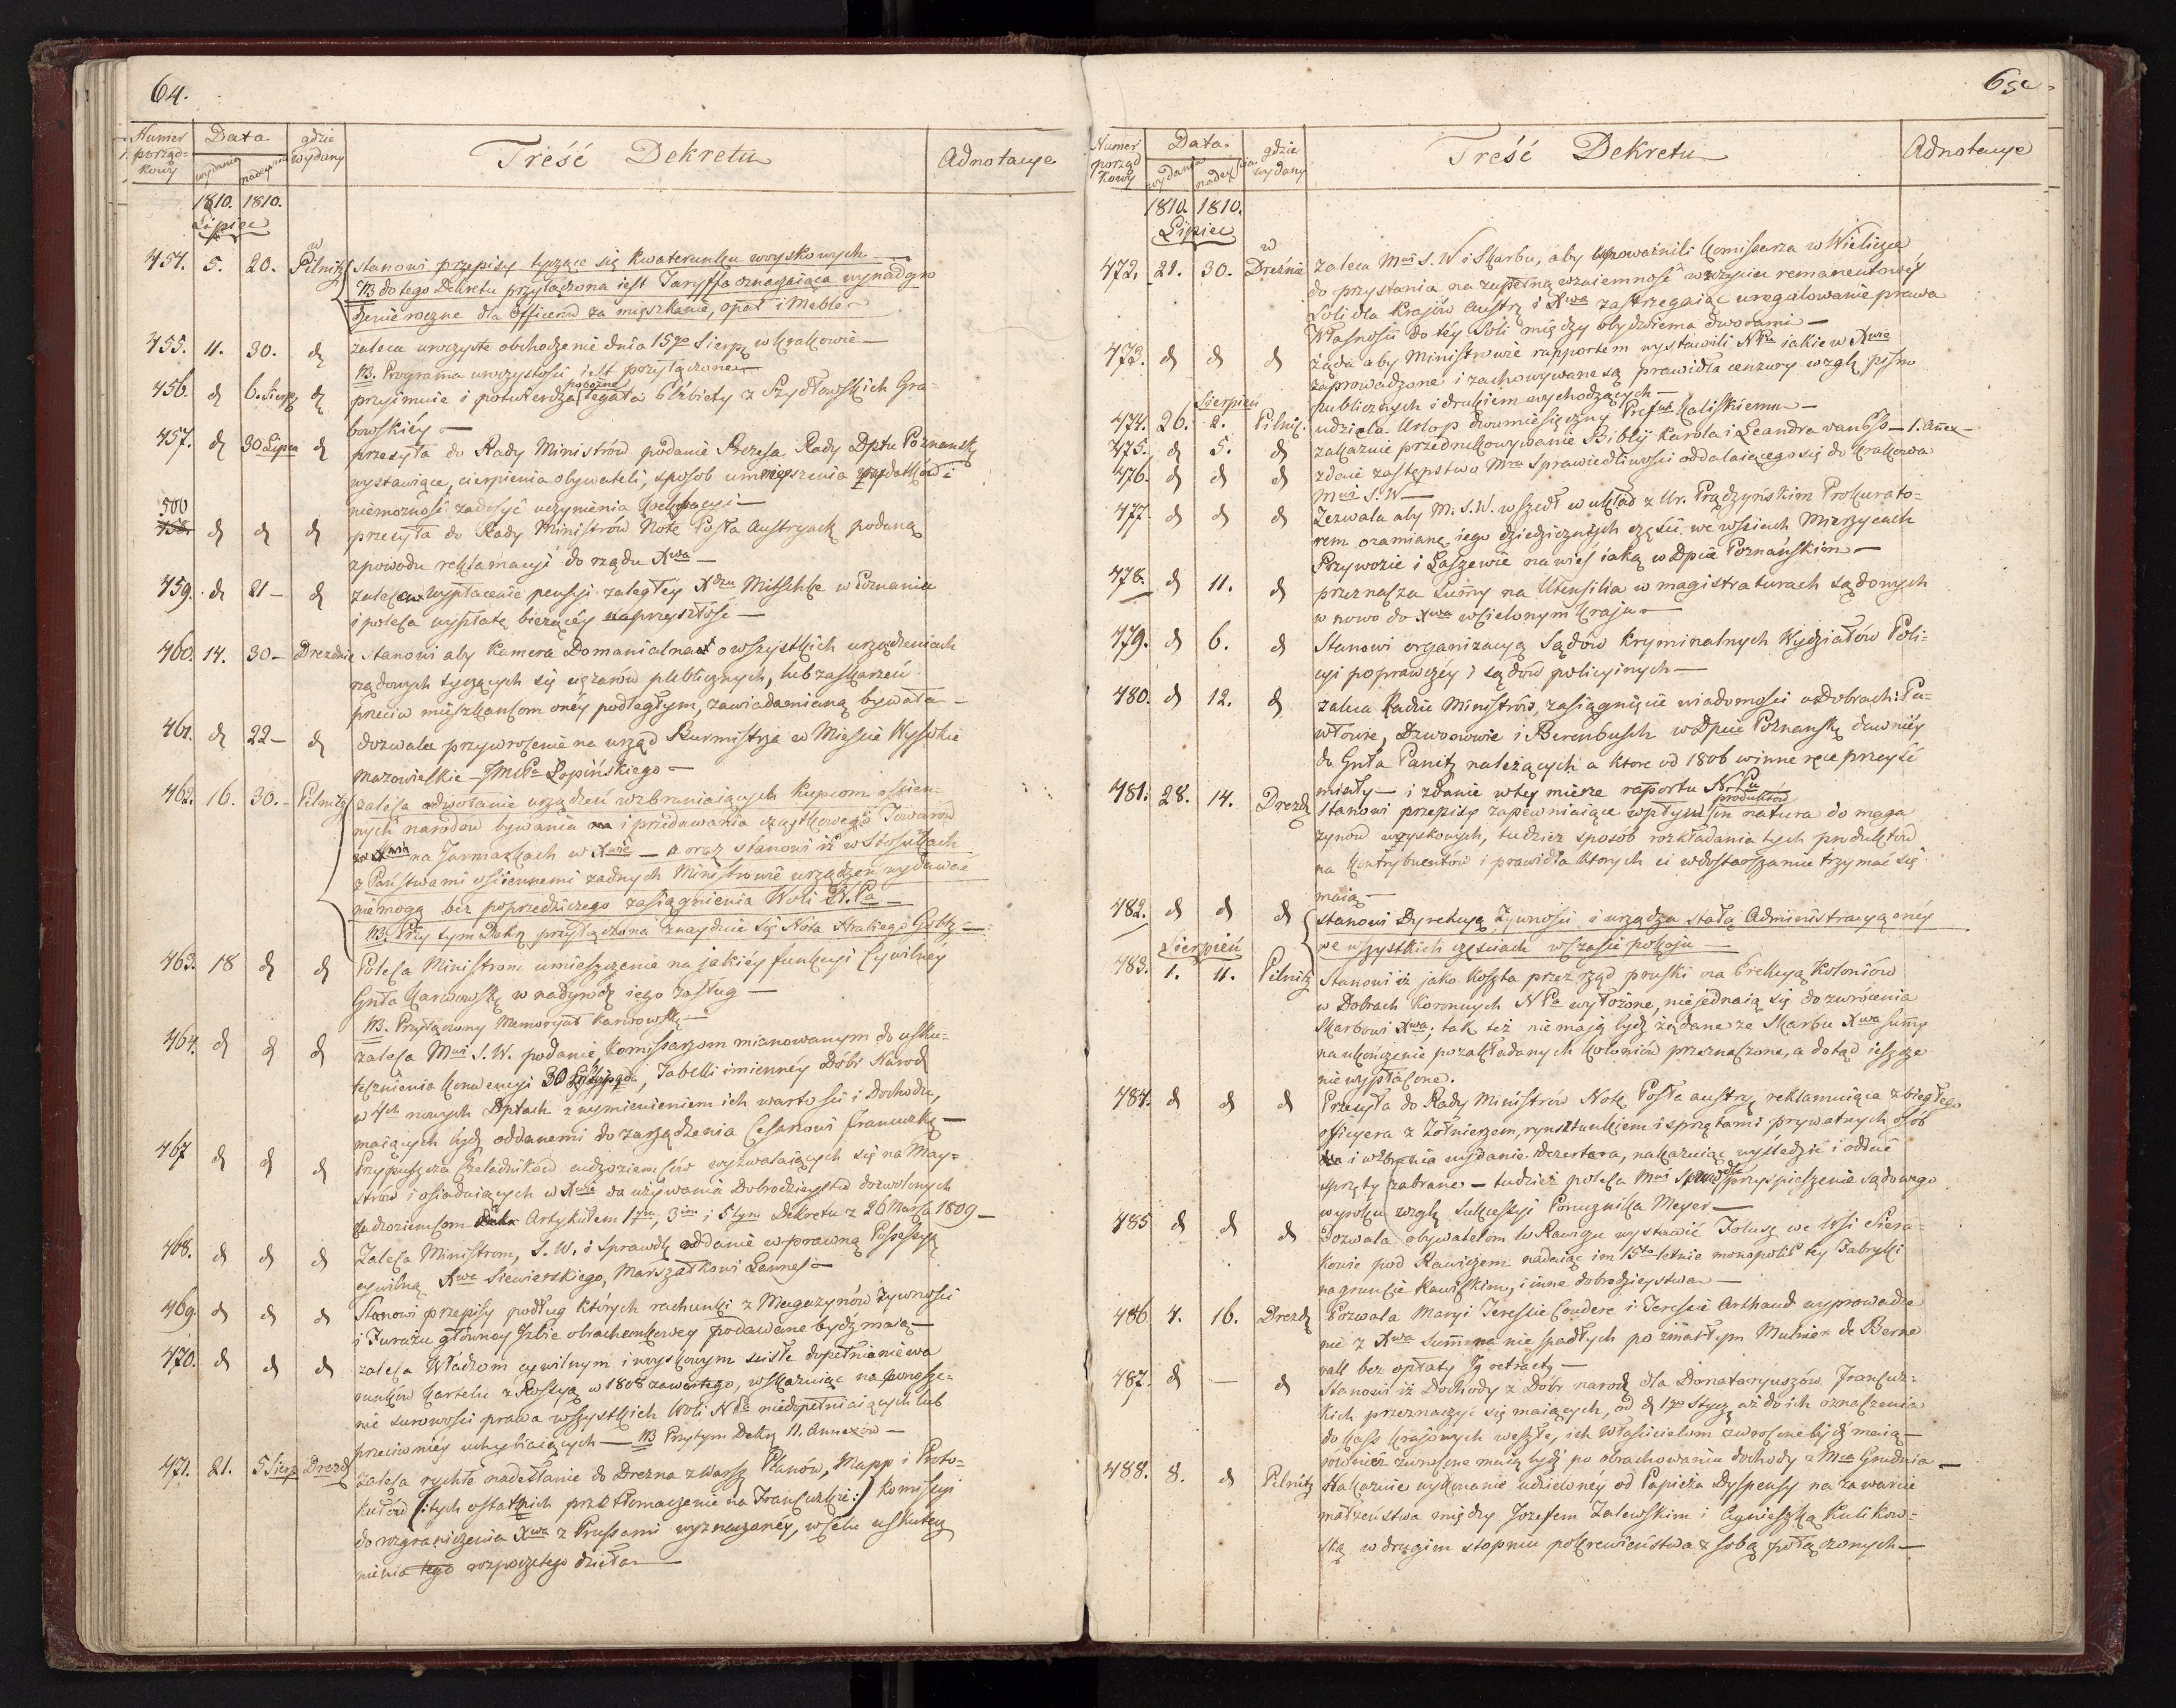 64.
Numer porząd= kowy
Data
wydania
nadejścia
gdzie wydany
Treść Dekretu
Adnotacye
1810. 1810.
Lipiec
454. 5. 20. w Pilnitz stanowi przepisy tyczące się kwaterunku woyskowych
NB do tego Dekretu przyłączona iest Taryffa oznaczaiąca wynadgro
dzenie roczne dla Officerów za mięszkanie, opał i Meble
455. 11. 30. d zaleca uroczyste obchodzenie dnia 15go Sierp. w Krakowie —
NB. Programa uroczystości iest przyłączone
456. d 6. Sierp d przyimuie i potwierdza pobożne legata Elżbiety z Szydłowskich Gra=
bowskiéy
457. d 30 Lipca d przesyła do Rady Ministrów podanie Prezesa Rady Dptu Poznansk
wystawiące, cierpienia obywateli, sposob umnieyszenia podatków i
niemożność zadosyć uczynienia
500
458. d d d przesyła do Rady Ministrów Notę Posła Austryack podaną
z powodu reklamacyi do rządu Xwa —
459. d 21 — d zaleca wypłacenie pensyi zaległey Xdzu Mitschke w Poznaniu
i poleca wypłatę bieżącéy na przyszłość —
460. 14. 30 — Drezdnie stanowi aby Kamera Domanialna o wszystkich urządzeniach
rządowych tyczących się ciężarów publicznych, lub zaskarżeń
przeciw mieszkancom onéy podległym, zawiadamianą bywała —
461. d 22 — d dozwala przywrocenie na urząd Burmistrza w Mieście Wysokie
Mazowieckie JMCPa Łopińskiego —
462. 16. 30. — Pilnitz zaleca odwołanie urządzeń wzbraniaiących kupcom oscien=
nych narodów bywania i przedawania cząstkowego Towarów
na Jarmarkach w Xwie — oraz stanowi iż w Stosunkach
z Państwami ościennemi żadnych Ministrowie urządzeń wydawać
niemogą bez poprzedniczego zasiągnienia Woli N. Pa —
NB. Przy tym Dekr przyłączona znayduie się Nota
463. 18 d d Poleca Ministrom umieszczenie na jakiéy funkcyi Cywilnéy
Gnła Karwowsk w nadgrodę iego zasług —
NB. Przyłączony Memoryał Karwowsk —
464. d d d zaleca Mwi S. W. podanie, Komissarzom mianowanym do usku=
tecznienia Konwencyi 30, Tabelli imiennéy Dóbr Narod
w 4ch nowych Dptach z wymienieniem ich wartości i Dochodu,
maiących bydź oddanemi do zarządzenia Cesarzowi francuzk —
467 d d d Przypuszcza Czeladników cudzoziemców wyzwalaiących się na May=
strów i osiadaiących w Xwie do używania Dobrodzieystw dozwolonych
cudzoziemcom Artykułem 1ym, 3im i 5tym Dekretu z 26 Marca 1809 —
468. d d d Zaleca Ministrom, S. W. i Sprawdl. oddanie w prawną Possessyą
cywilną Xwa Siewierskiego, Marszałkowi Lannes —
469. d d d Stanowi przepisy podług których rachunki z Magazynów żywności
i Furażu głównéy Izbie obrachunkowey podawane bydź maią —
470. d d d zaleca Władzom cywilnym i woyskowym ścisłe dopełnianie wa
runków kartelu z Rossyą w 1808 zawartego, wskazuiąc na
nie surowości prawa wszystkich Woli N Pa niedopełniaiących lub
przeciwniéy uchybiaiących — NB Przytym Dekr 11. Annexów —
471. 21. 5 Sierp Drezd zaleca rychłe nadesłanie do Drezna z Warsz Planów, Mapp i Proto=
kułów /:tych ostatnich prze tłomaczenie na Francuzkie:/ Komissyi
do rozgraniczenia Xwa z Prussami wyznaczonéy, w celu uskutecz
nienia tego rozpoczętego dzieła —
65
Numer porząd kowy
Data
wydania
nadejścia
gdzie wydany
Treść Dekretu
Adnotacye
1810. 1810.
Lipiec
472. 21. 30. w Dreźnie zaleca Mwi S. W i Skarbu, aby upoważnili Komissarza w Wieliczce
do przystania na zupełną wzaiemność w użyciu remanentowéy
Soli dla Krajów Austr i Xwa zastrzegaiąc uregulowanie prawa
Własności do téy Soli między obydwiema dworami —
473. d d d żąda aby Ministrowie rapportem wystawili N Pu iakie w Xwie
zaprowadzone i zachowywane są prawidła cenzury wzgl. pism
publicznych i drukiem wychodzących —
Sierpień
474. 26. 2. Pilnic. udziela Urlop dwumiesięczny Prefwi Kaliskiemu —
475. d 5. d zakazuie przedrukowywanie Biblij Karola i Leandra van Eß — 1. Anex —
476. d d d zdaie zastępstwo Mra Sprawiedliwości oddalaiącego się do Krakowa
Mwi S. W —
477. d d d Zezwala aby M. S. W. wszedł w układ z Ur. Prądzyńskim Prokurato=
rem o zamianę, iego dziedzicznych części we wsiach Mierzycach
Przywozie i Łaszewie na wieś iaką w Dpcie Poznańskim —
478. d 11. d przeznacza Sumy na Utensilia w magistraturach sądowych
w nowo do Xwa wcielonym kraju —
479. d 6. d Stanowi organizacyą Sądów kryminalnych Wydziałów Poli=
cyi poprawczéy i sądów policyinych —
480. d 12. d zaleca Radzie Ministrów, zasiągnięcie wiadomości o dobrach: Pa=
włowie, Dzwonowie i Berenbusch w Dpcie Poznansk dawniéy
do Gnła Panitz należących a które od 1806 w inne ręce przeyść
miały — i zdanie w téy mierze raportu N. Pu
481. 28. 14. Drezd stanowi przepisy zapewniaiące wpływ produktów in natura do maga
zynów woyskowych, tudzież sposob rozkładania tych produktów
na Kontrybuentów i prawidła których ci w dostarczaniu trzymać się
maią —
482. d d d stanowi Dyrekcyą Żywności i urządza stałą Administracyą onéy
we wszystkich częściach w czasie pokoju —
Sierpień
483. 1. 11. Pilnitz Stanowi iż jako koszta przez rząd pruski na Erekcyą Koloniów
w Dobrach Koronnych N Pa wyłożone, niejednaią się do zwrócenia
Skarbowi Xwa; tak też nie mają bydź żądane ze Skarbu Xwa summy
na ukończenie pozakładanych Koloniów przeznaczone, a dotąd ieszcze
niewypłacone.
484. d d d Przesyła do Rady Ministrów Notę Posła austr. reklamuiąca zbiegłego
officyera z Żołnierzem, rynsztunkiem i sprzętami prywatnych osób
i wzbrania wydanie Dezertera, nakazuiąc wyśledzić i oddać
sprzęty zabrane — tudzież poleca Mwi Sprawdl. przyspieszenie sądowego
wyroku wzgl Sukcessyi Porucznika Meyer —
485 d d d Dozwala obywatelom w Rawiczu wystawić Folusz we Wsi Siera=
kowie pod Rawiczem nadaiąc im 15to letnie monopolii téy Fabryki
na gruncie Rawickim, i inne dobrodzieystwa —
486 4. 16. Drezd Pozwala Maryi Teressie Couderc i Teressie Arthaud wyprowadze
nie z Xwa Summ na nie spadłych po zmarłym Mulnier de Berne
vall bez opłaty Jg retracty —
487. d — d Stanowi iż Dochody z Dóbr narod. dla Donataryuszów Francuz=
kich przeznaczyć się maiących, od d 1go Stycz aż do ich oznaczenia
do Kass krajowych weszłe, ich Właścicielom zwrócone bydź maią —
również zwrócone maią bydź po obrachowaniu dochody z Mca Grudnia —
488. 8. d Pilnitz Nakazuie wykonanie udzielonéy od Papieża Dyspensy na zawarcie
małżeństwa między Jozefem Zalewskim i Agnieszką Kulikow=
ską w drugim stopniu pokrewieństwa z sobą połączonych —